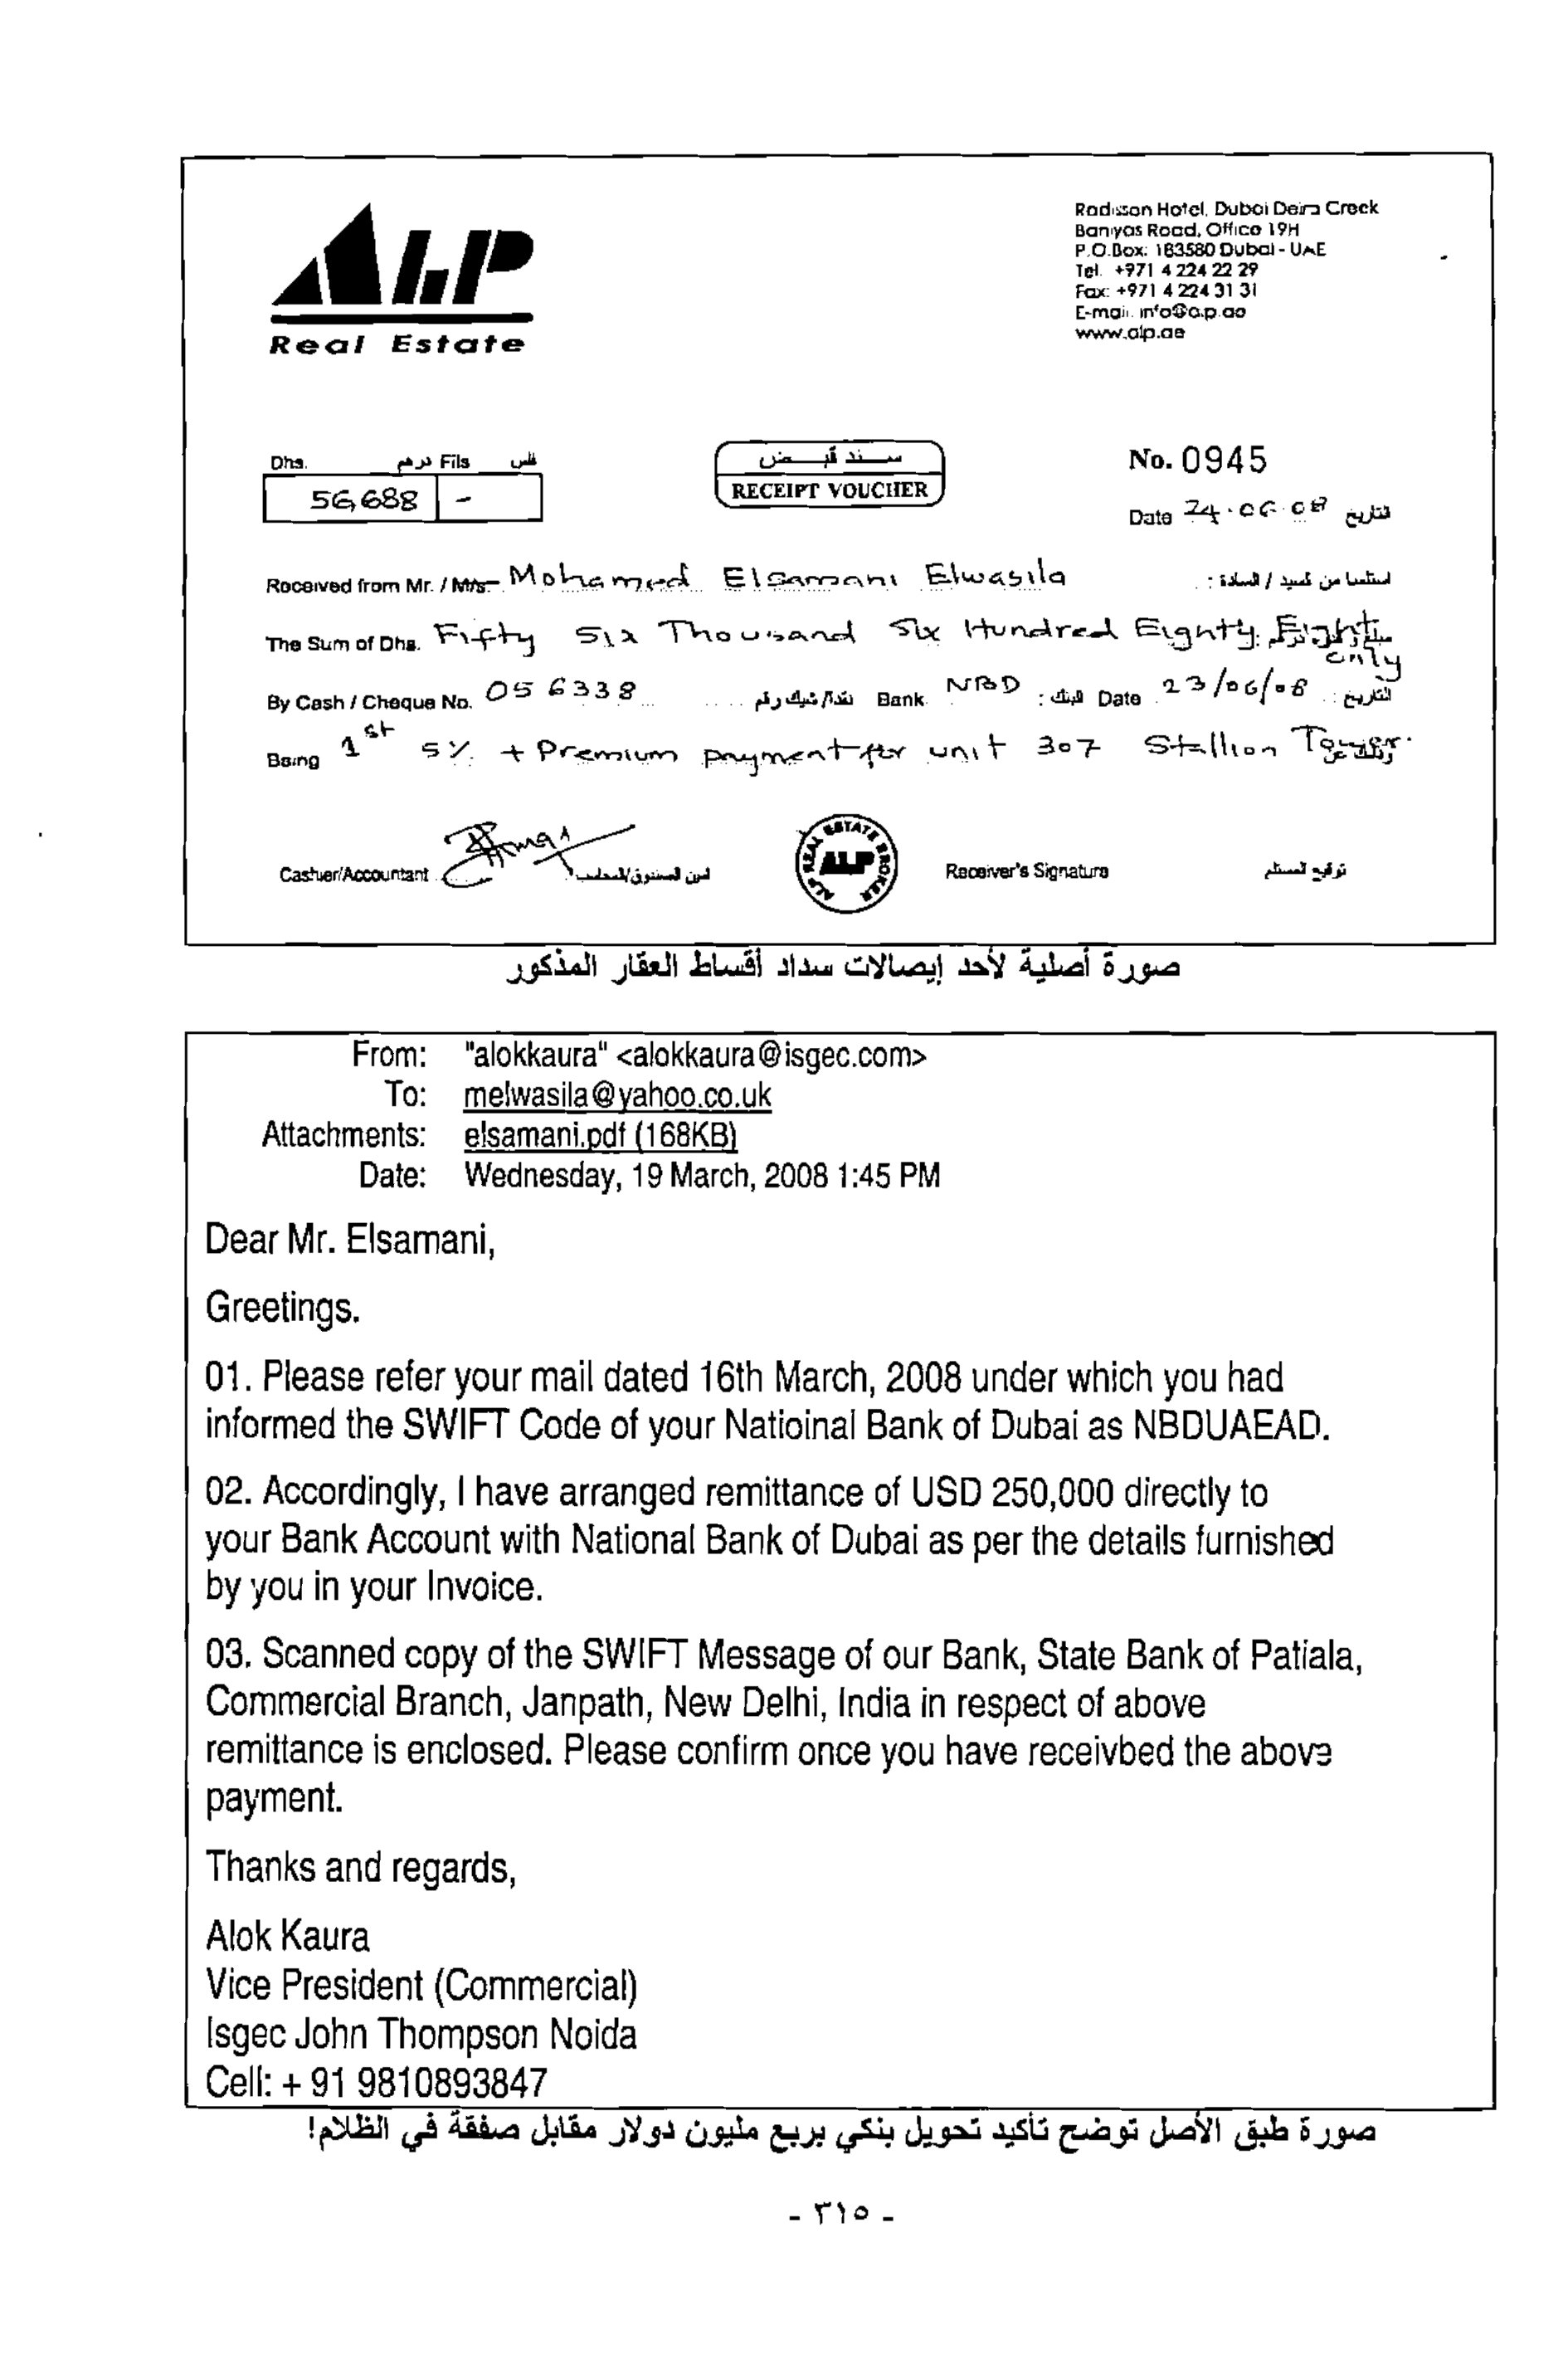 ALP
Real Estate
Radisson Hotel, Dubai Deira Creek
Baniyas Road, Office 19H
P.O.Box: 183580 Dubai - UAE
Tel. +971 4 224 22 29
Fax: +971 4 224 31 31
E-mail. info@alp.ae
www.alp.ae
Dhs. درهم Fils فلس
56,688 -
سند قبض
RECEIPT VOUCHER
No. 0945
Date 24.06.08 التاريخ
Received from Mr. / M/s. Mohamed Elsamani Elwasila استلمنا من السيد / السادة :
The Sum of Dhs. Fifty Six Thousand Six Hundred Eighty Eight only
By Cash / Cheque No. 056338 نقدا/شيك رقم Bank NBD البنك : Date 23/06/08 التاريخ :
Being 1st 5% + Premium payment for unit 307 Stallion Tower.
Cashier/Accountant أمين الصندوق/المحاسب
ALP REAL ESTATE BROKER
ALP
Receiver's Signature توقيع المستلم
صورة أصلية لأحد إيصالات سداد أقساط العقار المذكور
From: "alokkaura" <alokkaura@isgec.com>
To: melwasila@yahoo.co.uk
Attachments: elsamani.pdf (168KB)
Date: Wednesday, 19 March, 2008 1:45 PM
Dear Mr. Elsamani,
Greetings.
01. Please refer your mail dated 16th March, 2008 under which you had
informed the SWIFT Code of your Natioinal Bank of Dubai as NBDUAEAD.
02. Accordingly, I have arranged remittance of USD 250,000 directly to
your Bank Account with National Bank of Dubai as per the details furnished
by you in your Invoice.
03. Scanned copy of the SWIFT Message of our Bank, State Bank of Patiala,
Commercial Branch, Janpath, New Delhi, India in respect of above
remittance is enclosed. Please confirm once you have receivbed the above
payment.
Thanks and regards,
Alok Kaura
Vice President (Commercial)
Isgec John Thompson Noida
Cell: + 91 9810893847
صورة طبق الأصل توضح تأكيد تحويل بنكي بربع مليون دولار مقابل صفقة في الظلام!
- ٣١٥ -